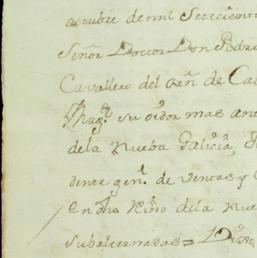 octubre de mil Setecientos
Señor Doctor Don Pedro
Cavallero del orñ de Cal
Magᵈ su oidor mas ant
dela Nueba Galicia, 
dente genˡ de ventas y
en dho Rño dela Nue
subalternadas = Dixo